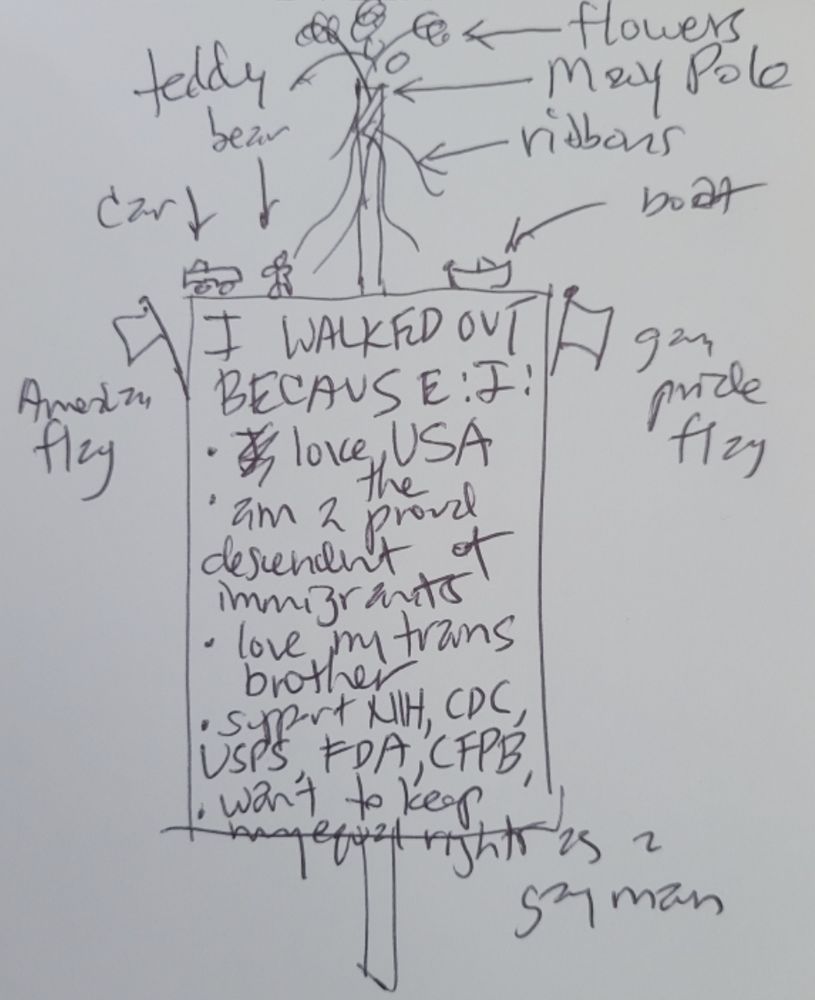 flowers
teddy
bear
May Pole
ribbons
car
boat
American
flag
gay
pride
flag
I WALKED OUT
BECAUSE: I:
• love the USA
• am a proud
descendent of
immigrants
• love my trans
brother
• support NIH, CDC,
USPS, FDA, CFPB,
• want to keep
my equal rights as a
gay man